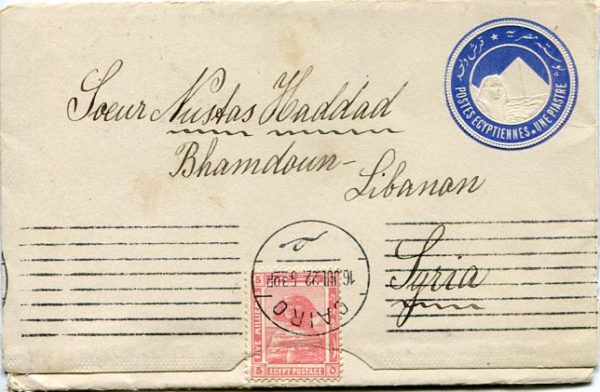 بوسته مصريه
قرش واحد
POSTES EGYPTIENNES ★ UNE PIASTRE
Soeur Nustas Haddad
Bhamdoun-
Libanon
Syria
CAIRO
16.JUL.22 5.30P
5 5
FIVE MILLIEMES
EGYPT POSTAGE
5 ٥